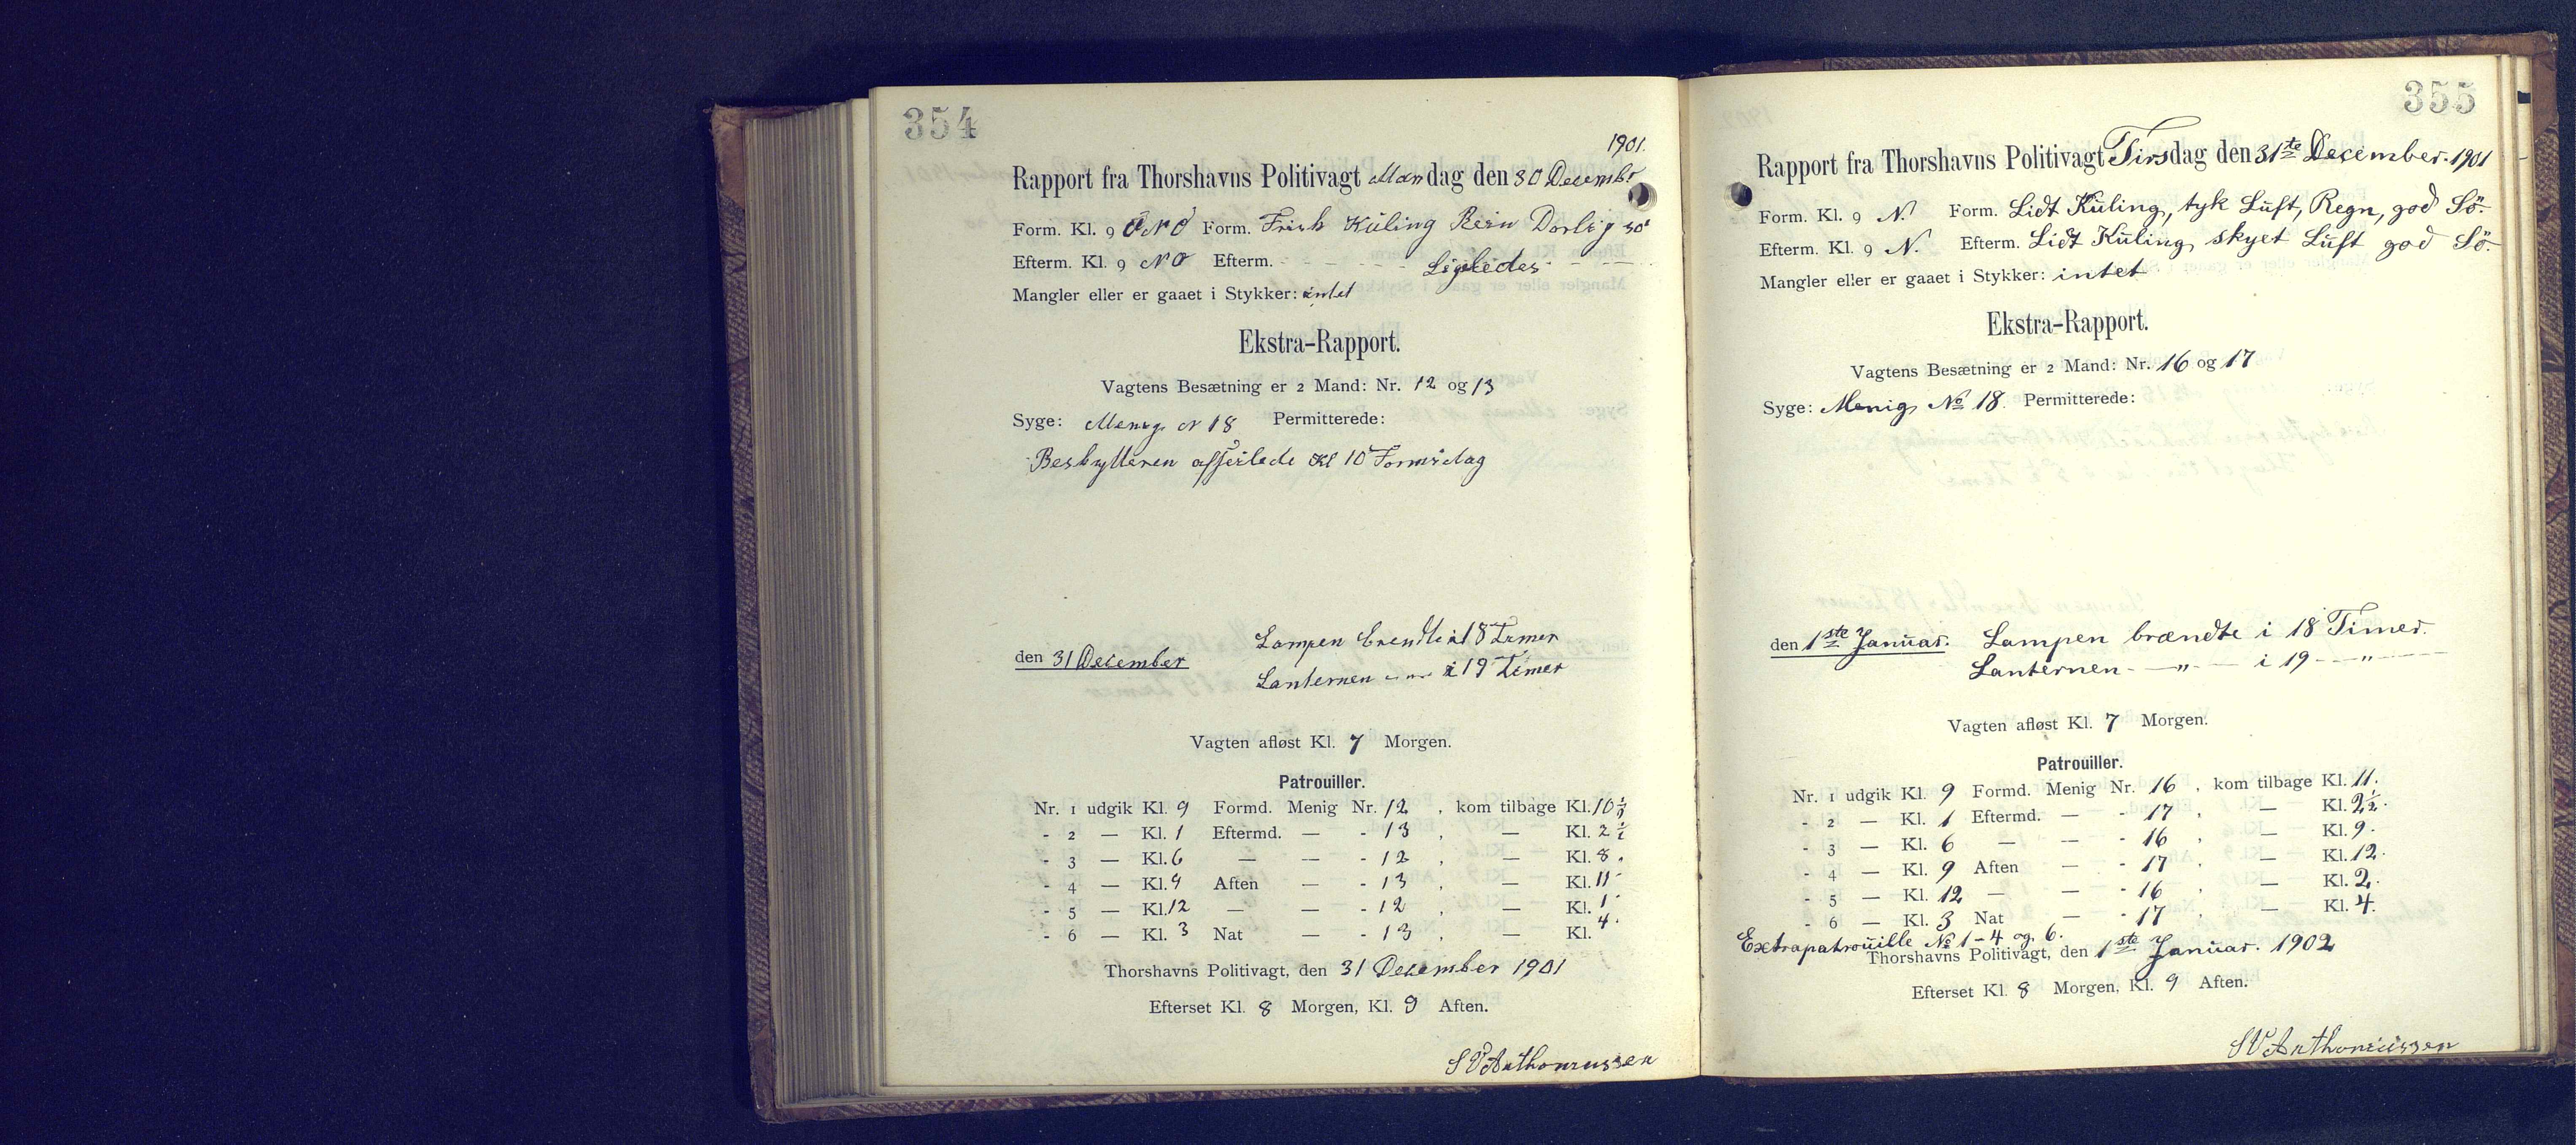 354
1901.
Rapport fra Thorshavns Politivagt Mandag den 30 Decembr
Form. Kl. 9 ONO Form. Frisk Kuling Rein Darlig sö
Efterm. Kl. 9 NO Efterm. - - - - - Ligeledes - - -
Mangler eller er gaaet i Stykker: intet
Ekstra-Rapport.
Vagtens Besætning er 2 Mand: Nr. 12 og 13
Syge: Menig N 18 Permitterede:
Beskytteren afseilede Kl 10 Formidag
den 31 December Lampen brendte i 18 Timer
Lanternen - - - i 19 Timer
Vagten afløst Kl. 7 Morgen.
Patrouiller.
Nr. 1 udgik Kl. 9 Formd. Menig Nr. 12 , kom tilbage Kl. 10 ½
- 2 — Kl. 1 Eftermd. — - 13 , — Kl. 2 ½
- 3 — Kl. 6 — — - 12 , — Kl. 8 .
- 4 — Kl. 9 Aften — - 13 , — Kl. 11
- 5 — Kl. 12 — — - 12 , — Kl. 1
- 6 — Kl. 3 Nat — - 13 , — Kl. 4.
Thorshavns Politivagt, den 31 December 1901
Efterset Kl. 8 Morgen, Kl. 9 Aften.
S V Anthoniussen
355
Rapport fra Thorshavns Politivagt Tirsdag den 31te December. 1901
Form. Kl. 9 N. Form. Lidt Kuling, tyk Luft, Regn, god Sö.
Efterm. Kl. 9 N. Efterm. Lidt Kuling, skyet Luft god Sö.
Mangler eller er gaaet i Stykker: intet
Ekstra-Rapport.
Vagtens Besætning er 2 Mand: Nr. 16 og 17
Syge: Menig No 18. Permitterede:
den 1ste Januar. Lampen brændte i 18 Timer.
Lanternen - — " — i 19 - — " —
Vagten afløst Kl. 7 Morgen.
Patrouiller.
Nr. 1 udgik Kl. 9 Formd. Menig Nr. 16 , kom tilbage Kl. 11.
- 2 — Kl. 1 Eftermd. — - 17 , — Kl. 2½.
- 3 — Kl. 6 — — - 16 , — Kl. 9.
- 4 — Kl. 9 Aften — - 17 , — Kl. 12.
- 5 — Kl. 12 — — - 16 , — Kl. 2.
- 6 — Kl. 3 Nat — - 17 , — Kl. 4.
Extrapatrouille No 1 - 4 og 6.
Thorshavns Politivagt, den 1ste Januar. 1902
Efterset Kl. 8 Morgen, Kl. 9 Aften.
S V Anthoniussen